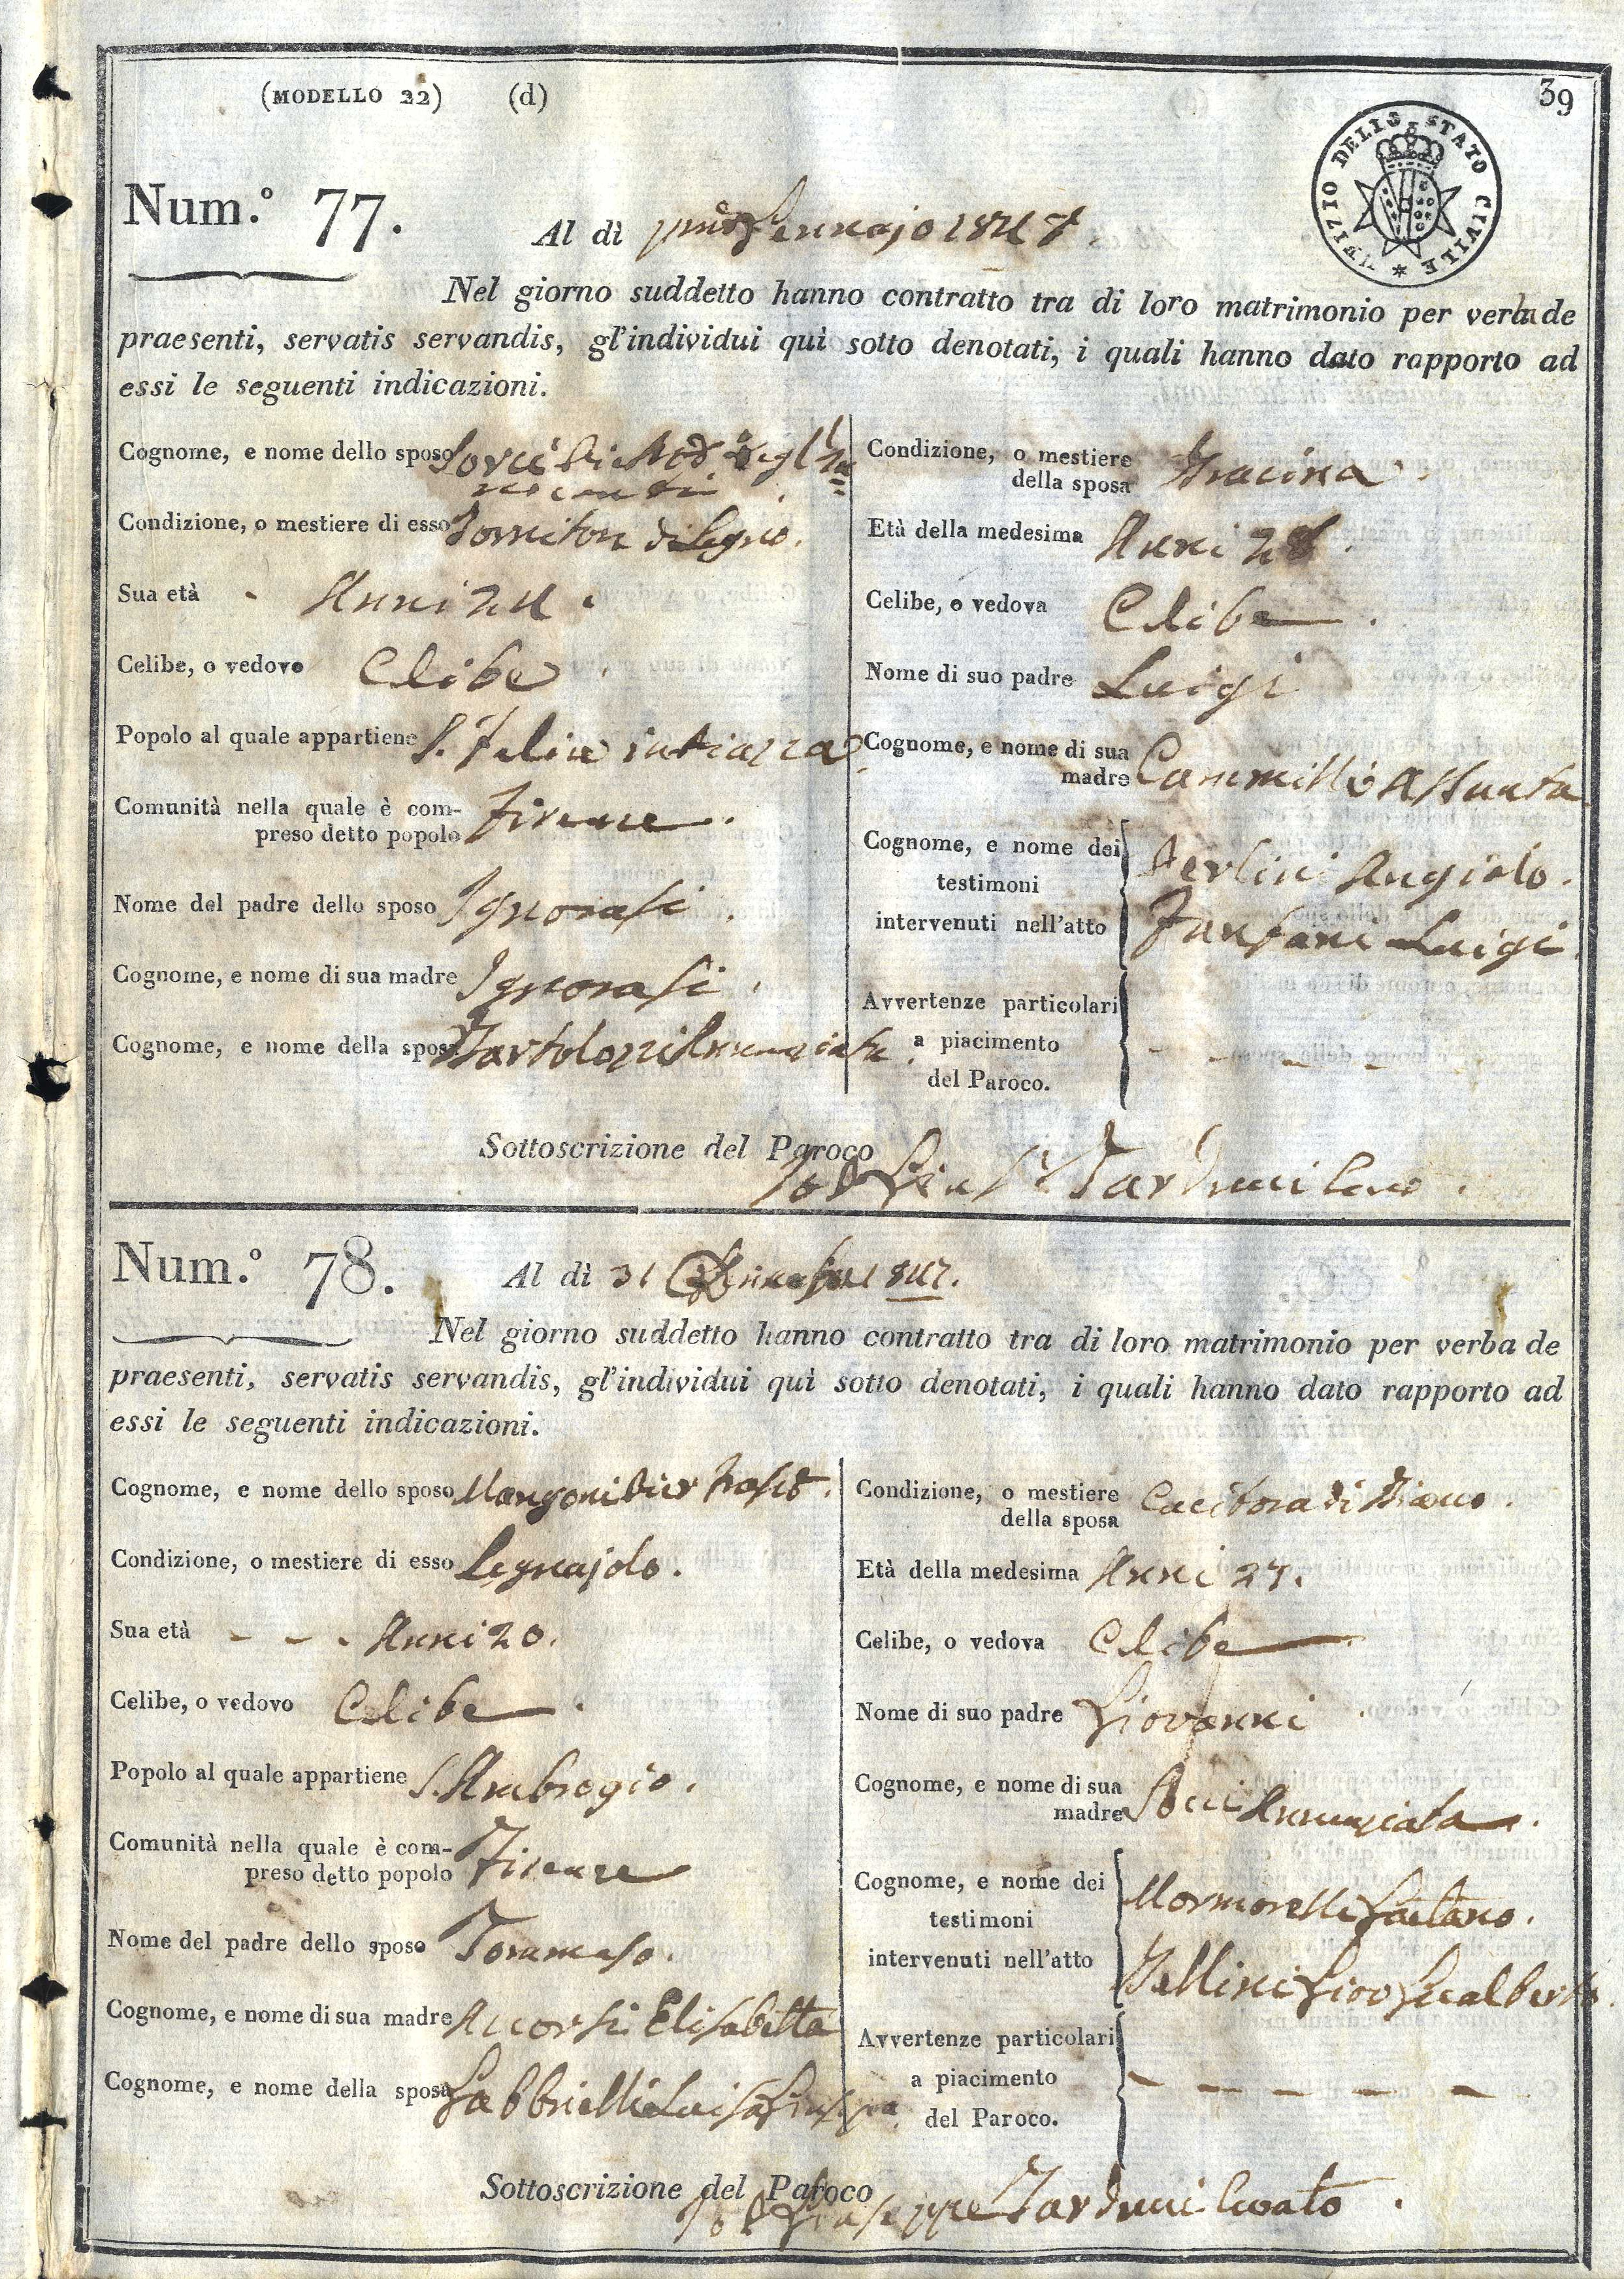 (MODELLO 22) (d)
39
UFIZIO DELLO STATO CIVILE
Num.º 77.
Al dì Gennajo 1847.
Nel giorno suddetto hanno contratto tra di loro matrimonio per verba de
praesenti, servatis servandis, gl'individui quì sotto denotati, i quali hanno dato rapporto ad
essi le seguenti indicazioni.
Cognome, e nome dello sposo
Condizione, o mestiere di esso Tornitore di Legno.
Sua età - Anni 24.
Celibe, o vedovo Celibe
Popolo al quale appartiene S. Felice in Piazza
Comunità nella quale è com-
preso detto popolo Firenze.
Nome del padre dello sposo Ignorasi.
Cognome, e nome di sua madre Ignorasi.
Cognome, e nome della sposa Bartolozzi Annunziata.
Condizione, o mestiere
della sposa Tracina.
Età della medesima Anni 28.
Celibe, o vedova Celibe.
Nome di suo padre Luigi
Cognome, e nome di sua
madre Cammilli Assunta
Cognome, e nome dei
testimoni
intervenuti nell'atto
Angiolo.
Fanfani Luigi
Avvertenze particolari
a piacimento
del Paroco.
- - - -
Sottoscrizione del Paroco
Tarduci Curo.
Num.º 78.
Al dì 31 1847.
Nel giorno suddetto hanno contratto tra di loro matrimonio per verba de
praesenti, servatis servandis, gl'individui quì sotto denotati, i quali hanno dato rapporto ad
essi le seguenti indicazioni.
Cognome, e nome dello sposo Mangoni
Condizione, o mestiere di esso Legnajolo.
Sua età - - - Anni 20.
Celibe, o vedovo Celibe.
Popolo al quale appartiene S. Ambrogio.
Comunità nella quale è com-
preso detto popolo Firenze
Nome del padre dello sposo Tommaso.
Cognome, e nome di sua madre Accorsi Elisabetta
Cognome, e nome della sposa Gabbrielli Luisa Giuseppa
Condizione, o mestiere
della sposa Cucitora di Bianco.
Età della medesima Anni 27.
Celibe, o vedova Celibe
Nome di suo padre Giovanni
Cognome, e nome di sua
madre Annunziata.
Cognome, e nome dei
testimoni
intervenuti nell'atto
Gaetano.
Gio Gualberto.
Avvertenze particolari
a piacimento
del Paroco.
- - - - -
Sottoscrizione del Paroco
Giuseppe Tarduci Curato.